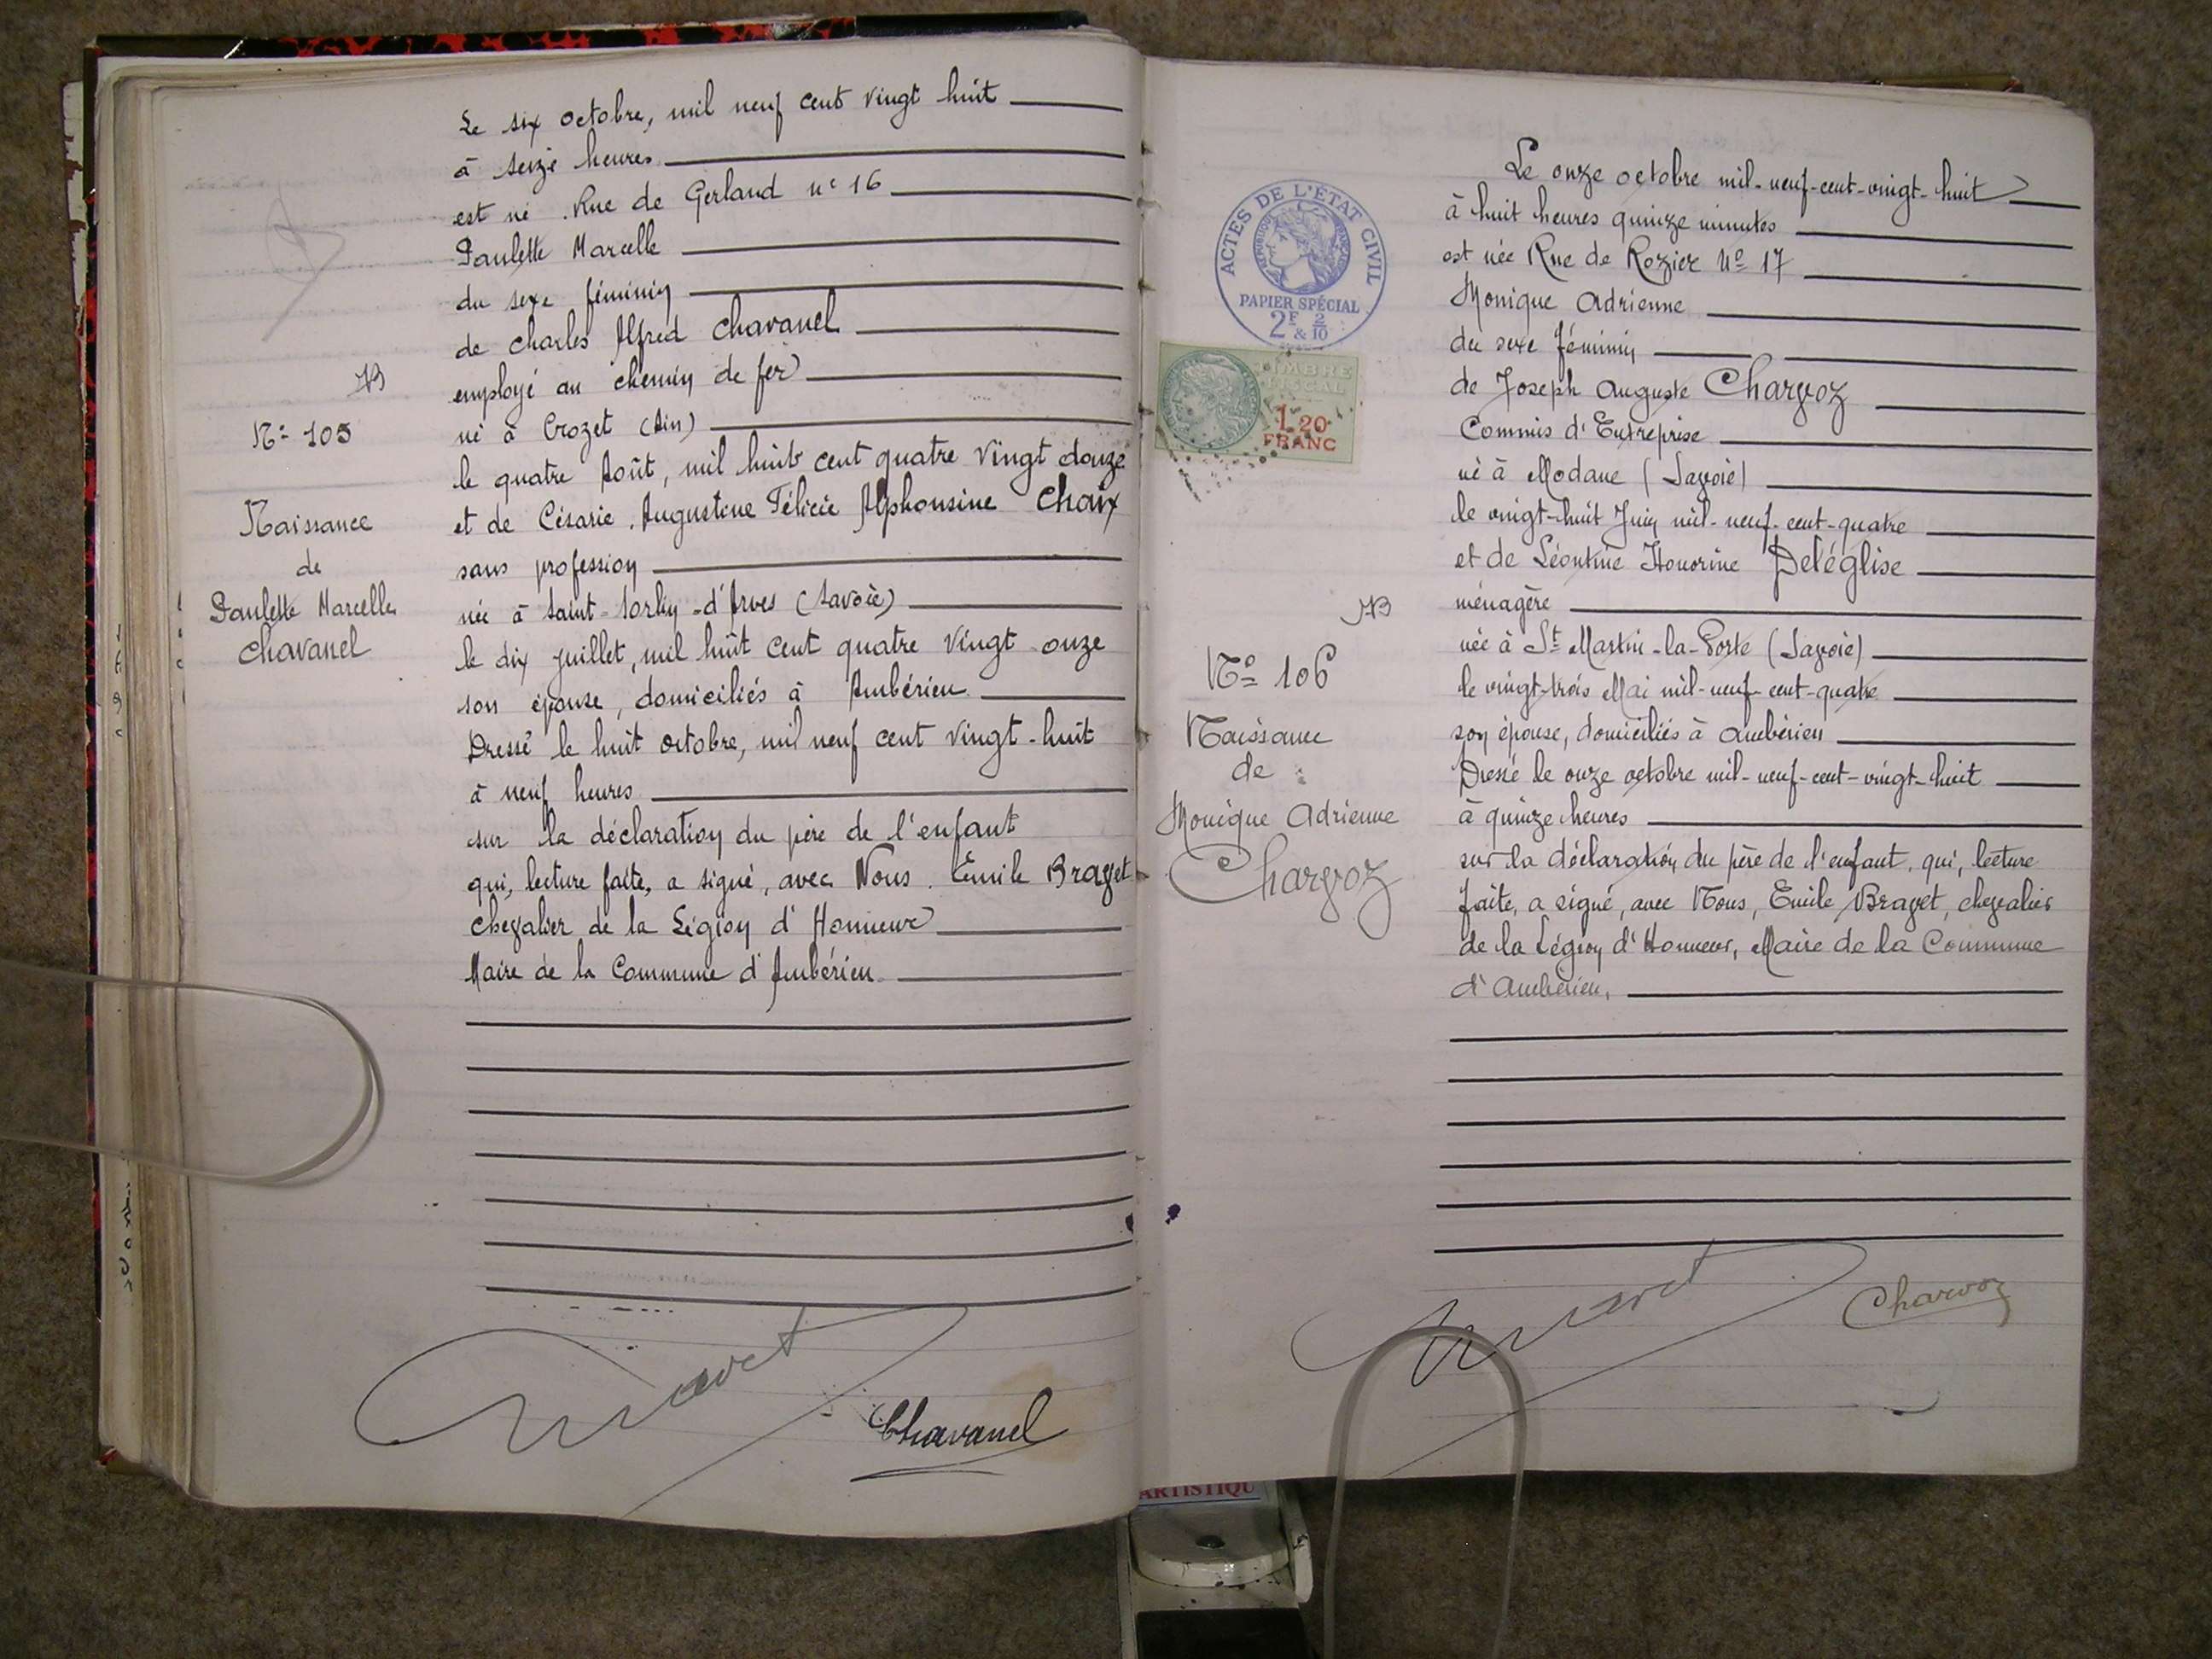 Le six octobre, mil neuf cent vingt huit
à seize heures
est né . Rue de Gerland n° 16
Paulette Marcelle
du sexe féminin
de Charles Alfred Chavanel
employé au chemin de fer
né à Crozet (Ain)
le quatre Août, mil huit cent quatre vingt douze
et de Césarie . Augustine Félicie Alphonsine Chaix
sans profession
née à Saint-Sorlin-d'Arves (Savoie)
le dix juillet, mil huit cent quatre vingt onze
son épouse, domiciliés à Ambérieu
Dressé le huit octobre, mil neuf cent vingt-huit
à neuf heures
sur la déclaration du père de l'enfant
qui, lecture faite, a signé, avec Nous . Emile Bravet
chevalier de la Légion d'Honneur
Maire de la Commune d'Ambérieu
N° 105
Naissance
de
Paulette Marcelle
Chavanel
Bravet
Chavanel
ACTES DE L'ÉTAT CIVIL
RÉPUBLIQUE FRANÇAISE
PAPIER SPÉCIAL
2F & 2/10
TIMBRE
FISCAL
1,20
FRANC
Le onze octobre mil-neuf-cent-vingt-huit
à huit heures quinze minutes
est née Rue de Rozier N° 17
Monique Adrienne
du sexe féminin
de Joseph Auguste Charvoz
Commis d'Entreprise
né à Modane (Savoie)
le vingt-huit Juin mil-neuf-cent-quatre
et de Léontine Honorine Deléglise
ménagère
née à St Martin-la-Porte (Savoie)
le vingt-trois Mai mil-neuf-cent-quatre
son épouse, domiciliés à Ambérieu
Dressé le onze octobre mil-neuf-cent-vingt-huit
à quinze heures
sur la déclaration du père de l'enfant, qui, lecture
faite, a signé, avec Nous, Emile Bravet, chevalier
de la Légion d'Honneur, Maire de la Commune
d'Ambérieu,
N° 106
Naissance
de
Monique Adrienne
Charvoz
Bravet
Charvoz
ARTISTIQU